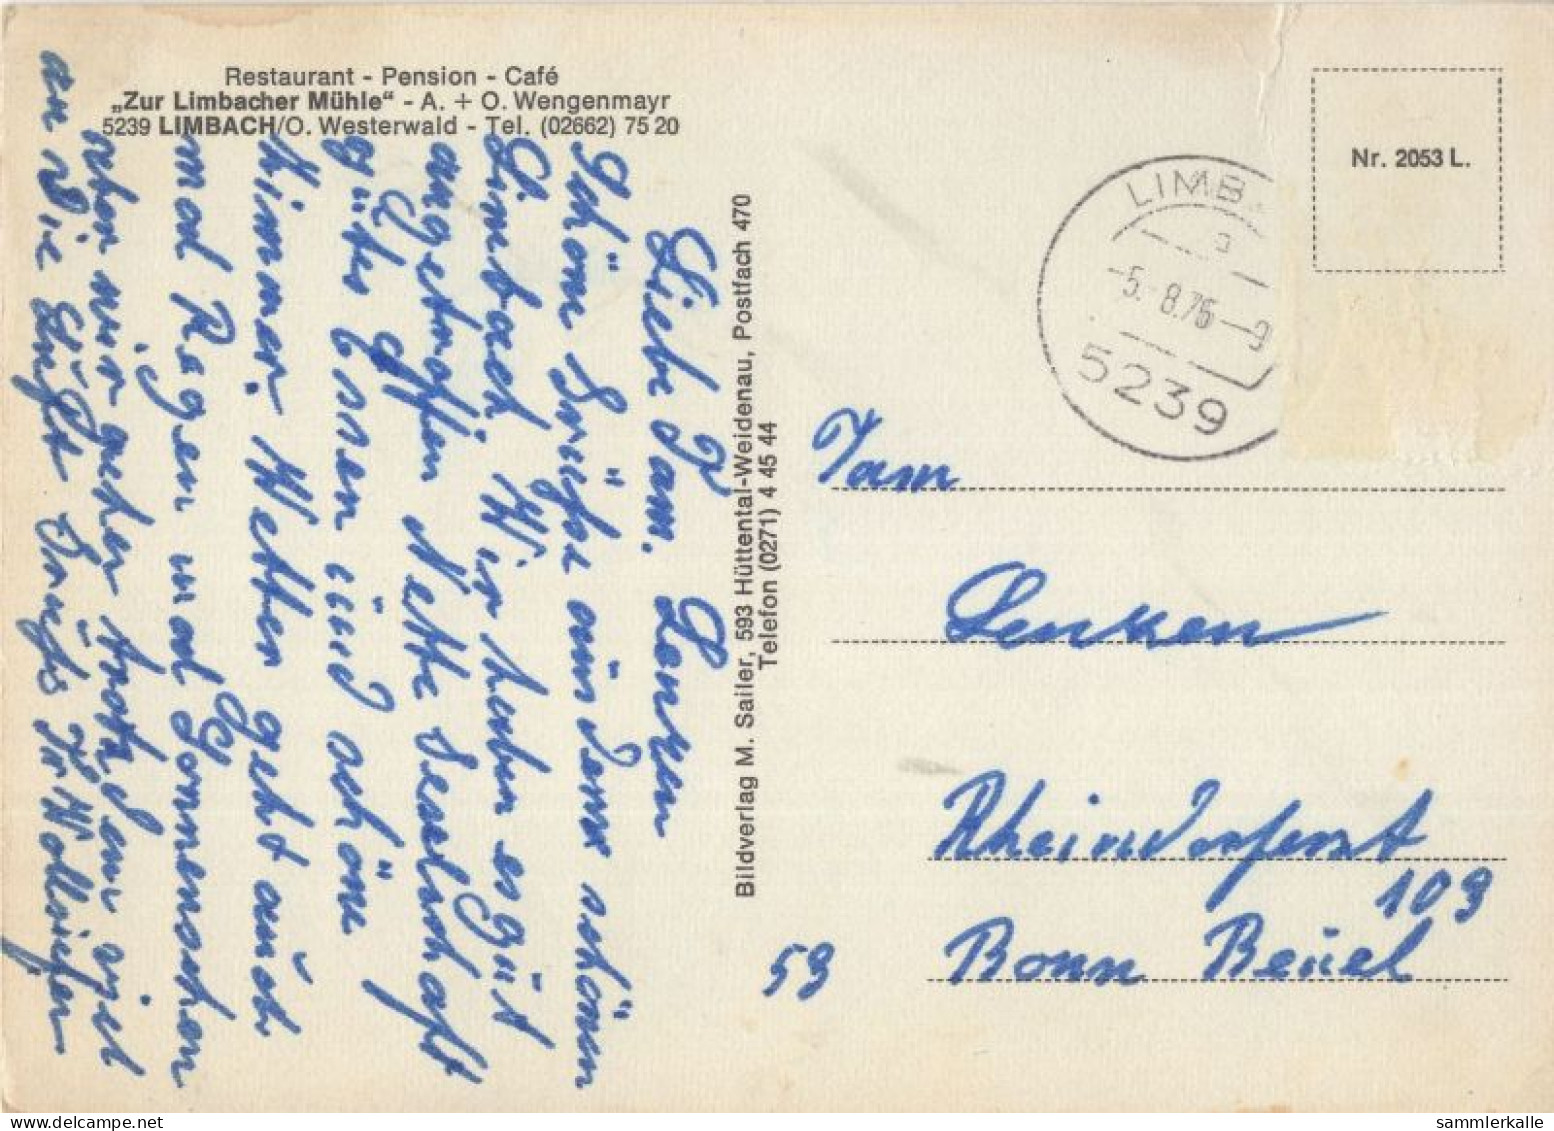 Restaurant - Pension - Café
„Zur Limbacher Mühle“ - A. + O. Wengenmayr
5239 LIMBACH/O. Westerwald - Tel. (02662) 75 20
Liebe Fam. Lenken
Schöne Grüße aus dem schönen
Limbach. Wir haben es gut
angetroffen Nette Gesellschaft
gutes Essen und schöne
Zimmer. Wetter geht auch
mal Regen mal Sonnenschen
aber wir gehen trotzdem viel
an die Luft
Bildverlag M. Sailer, 593 Hüttental-Weidenau, Postfach 470
Telefon (0271) 4 45 44
Nr. 2053 L.
LIMB
a
-5.-8.76-9
5239
Fam
Lenken
Rheindorferst
109
53 Bonn Beuel
sammlerkalle